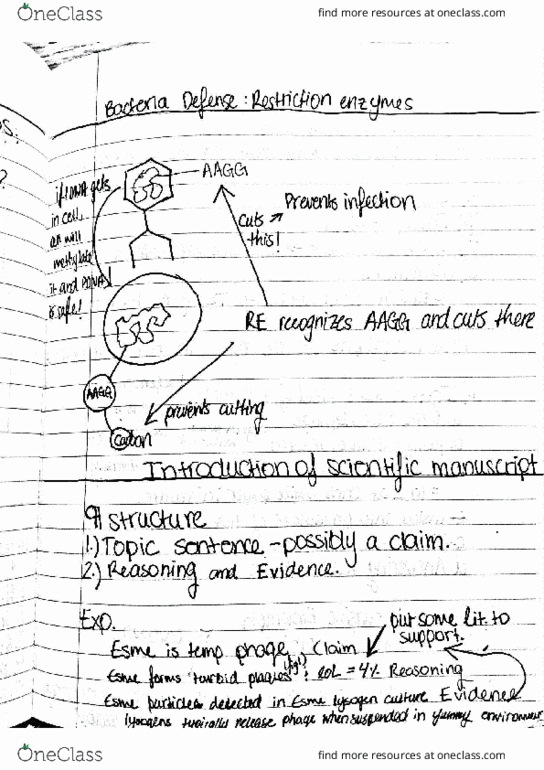 OneClass
find more resources at oneclass.com
Bacteria Defense: Restriction enzymes
AAGG
if DNA gets
in cell,
will
methylate
it and
is safe!
Prevents infection
cuts
this!
RE recognizes AAGG and cuts there
AAGG
prevents cutting
Carbon
Introduction of scientific manuscript
¶ structure
1.) Topic sentence - possibly a claim.
2.) Reasoning and Evidence.
Exp.
put some lit. to
support.
Esme is temp phage, Claim
Esme forms turbid plaques (fig 1): EOL = 4% Reasoning
Esme particles detected in Esme lysogen culture Evidence
lysogens typically release phage when suspended in yummy environment
OneClass
find more resources at oneclass.com